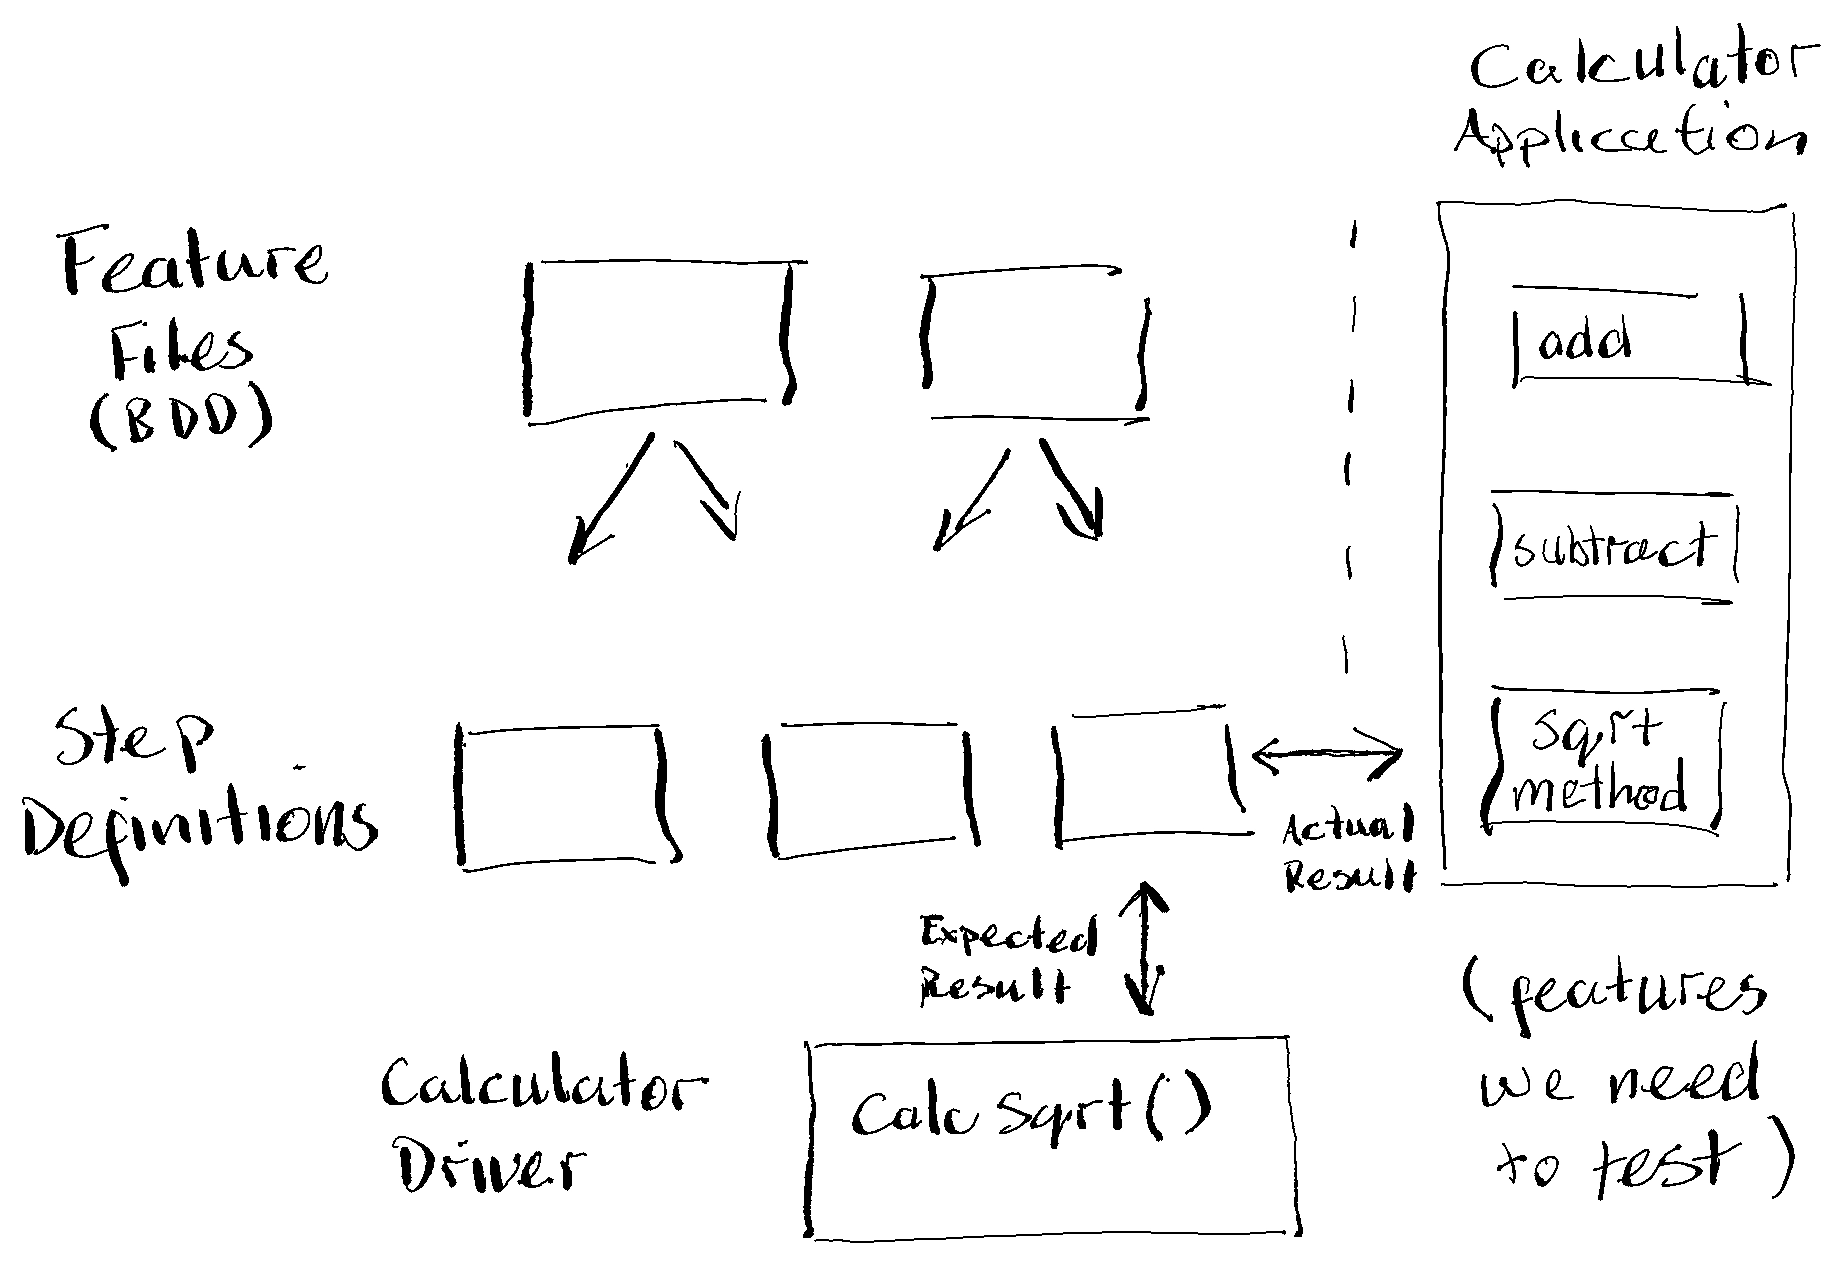 Calculator
Application
Feature
Files
(BDD)
add
subtract
sqrt
method
Step
Definitions
Actual
Result
Expected
Result
Calculator
Driver
Calc Sqrt()
(features
we need
to test)